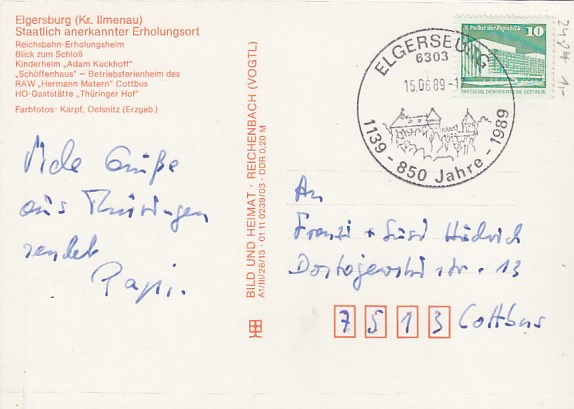 Elgersburg (Kr. Ilmenau)
Staatlich anerkannter Erholungsort
Reichsbahn-Erholungsheim
Blick zum Schloß
Kinderheim „Adam Kuckhoff"
„Schöffenhaus" – Betriebsferienheim des
RAW „Hermann Matern" Cottbus
HO-Gaststätte „Thüringer Hof"
Farbfotos: Karpf, Oelsnitz (Erzgeb.)
Viele Grüße
aus Thüringen
sendet
Papi.
BILD UND HEIMAT · REICHENBACH (VOGTL)
A1/III/26/13 · 01 11 0239/03 · DDR 0,20 M
ELGERSBURG
6303
15.06.89-1
1139 - 850 Jahre - 1989
Palast der Republik
10
DEUTSCHE DEMOKRATISCHE REPUBLIK
An
Franzi + Susi
Dostojewski str. 13
7513 Cottbus